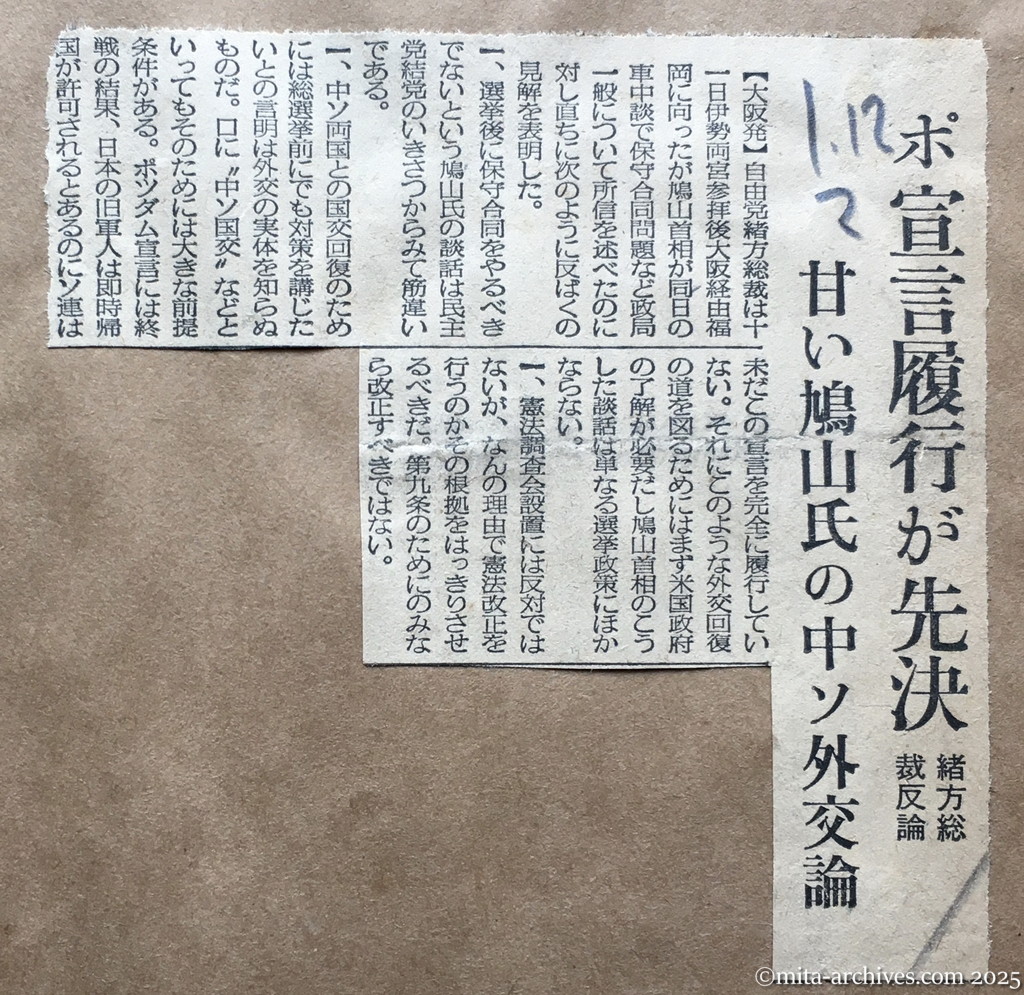 ポ宣言履行が先決
緒方総
裁反論
甘い鳩山氏の中ソ外交論
1.12
【大阪発】自由党緒方総裁は十
一日伊勢両宮参拝後大阪経由福
岡に向ったが鳩山首相が同日の
車中談で保守合同問題など政局
一般について所信を述べたのに
対し直ちに次のように反ばくの
見解を表明した。
一、選挙後に保守合同をやるべき
でないという鳩山氏の談話は民主
党結党のいきさつからみて筋違い
である。
一、中ソ両国との国交回復のため
には総選挙前にでも対策を講じた
いとの言明は外交の実体を知らぬ
ものだ。口に〝中ソ国交〟などと
いってもそのためには大きな前提
条件がある。ポツダム宣言には終
戦の結果、日本の旧軍人は即時帰
国が許可されるとあるのにソ連は
未だこの宣言を完全に履行してい
ない。それにこのような外交回復
の道を図るためにはまず米国政府
の了解が必要だし鳩山首相のこう
した談話は単なる選挙政策にほか
ならない。
一、憲法調査会設置には反対では
ないが、なんの理由で憲法改正を
行うのかその根拠をはっきりさせ
るべきだ。第九条のためにのみな
ら改正すべきではない。
©mita-archives.com 2025